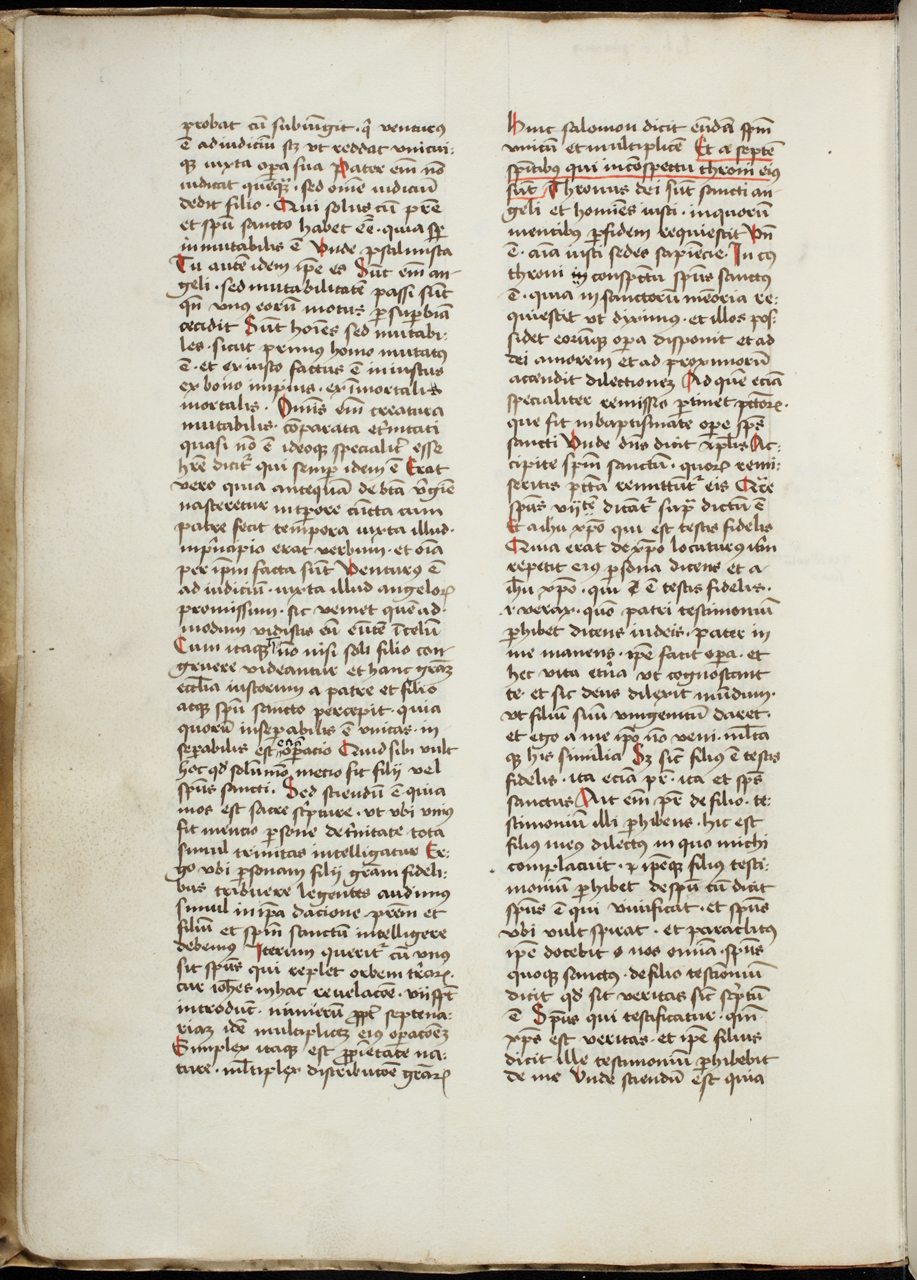 probat cū subiūgit · qͥ venturꝯ
ē ad iudiciū sꝫ vt reddat vnicui:
qꝫ iuxta oꝑa sua Pater em̄ nō
iudicat quēqᷓ · sed om̄e iudiciū
dedit filio · Qui solus cū pr̄e
et spū sancto habet eē · quia sꝑ
inmutabilis ē Vnde psalmista
Tu autē idem ip̄e es Sūt em̄ an-
geli · sed mutabilitatē passi sūt
qn̄ vnꝯ eorū motus ꝑ suꝑbiā
cecidit Sūt hoīes sed mutabi-
les · sicut primꝯ homo mutatꝯ
ē · et ex iusto factus ē iniustus
ex bono impius · ex īmortalis
mortalis · Omīs em̄ creatura
mutabilis · cōparata et̄nitati
quasi nō ē ideoqꝫ specialit̄ esse
hr̄e dicit̄ qui semꝑ idem ē Erat
vero quia anteqᷓ de btā v̓gīe
nasceretur in tꝑore cūcta cum
patre fecit tempora iuxta illud ·
in pͥncipio erat verbum · et oīa
per ip̄m facta sūt Venturꝯ ē
ad iudiciū · iuxta illud angeloꝝ
promissum · sic veniet quē ad
modum vidistis eū eūtē ī celū
Cum itaqꝫ nō nisi soli filio con
gruere videantur et hanc gr̄aꝫ
eccl̄ia iustorum a patre et filio
atqꝫ spū sancto percepit · quia
quorū inseꝑabilis ē vnitas · in
seꝑabilis est oꝑacio Quid sibi vult
hoc qd̓ solūmō mecio fit filij vel
spūs sancti · Sed sciendū ē quia
mos est sacre sc̓pture · vt vbi vniꝯ
fit mencio ꝑsone de t̓nitate tota
simul trinitas intelligatur Er:
go vbi ꝑsonam filij gr̄am fideli:
bus tribuere legentes audimꝯ
simul in ip̄a dacione pr̄em et
filiū et spm̄ sanctū intelligere
debemꝯ Iterum querit̄ cū vnꝯ
sit spūs qui replet orbem t̓raꝝ ·
cur ioh̄es in hac reuelacōe · vij spt̄
introduc̄ · nūmerū ꝓpt̄ septena:
riaꝫ idē multiplicē eiꝯ oꝑacōeꝫ
Simplex itaqꝫ est ꝓprietate na:
ture · ml̄tiplex distributōe gr̄aꝝ
Hinc salomon dicit eūdā spm̄
vnicū et multiplicē Et a septē
spīritibꝯ qui in cōspectu throni eiꝯ
sūt Thronus dei sūt sancti an-
geli et homīes iusti · in quorū
mentibus ꝑ fidem requiescit Vn̄
ē · aīa iusti sedes sapiēcie · In cꝯ
throni conspectu spūs sanctus
ē · quia in sanctorū mēoria re:
quiescit vt diximꝯ · et illos pos:
sidet eorūqꝫ oꝑa disponit et ad
dei amorem et ad proximorū
accendit dilectioneꝫ Ad quē eciā
specialiter remissio ꝑtinet pctōꝝ ·
que fit in baptismate ope sp̄s
sancti Vnde dn̄s dicit apl̄is Ac:
cipite spm̄ sanctū · quoꝝ remi:
seritis pctā remittūt̄ eis Qr̄e
spūs vij tē dicāt̄ supᷓ dictū ē
Et a ihu xp̄o qui est testis fidelis
Quia erat de xp̄o locuturꝯ itīm
repetit eiꝯ ꝑsona dicens et a
ih̄u xp̄o · qui ē testis fidelis ·
⁊ verax · quō patri testimoniū
ꝑhibet dicens iudeis · pater in
me manens · ip̄e facit oꝑa · et
hec vita et̓na vt cognoscant
te · et sic deus dilexit mūdum ·
vt filiū suū vnigenitū daret ·
et ego a me ipō nō veni · ml̄ta
qꝫ his similia Sꝫ sic̄ filiꝯ ē testis
fidelis · ita eciā pr̄ · ita et sp̄s
sanctus Ait em̄ pr̄ de filio · te:
stimoniū illi ꝑhibens · hic est
filiꝯ meꝯ dilectꝯ in quo michi
complacuit · ⁊ ip̄eqꝫ filius testi:
moniū ꝑhibet de spū cū dicit
spūs ē qui viuificat · et spūs
vbi vult spirat · et paraclitꝯ
ip̄e docebit vos omīa · spūs
quoqꝫ sanctus · de filio testīoniū
dicit qd̓ sit veritas sic̄ sc̓ptū
ē Spūs qui testificatur · qm̄
xp̄s est veritas · et ip̄e filius
dicit ille testimoniū ꝑhibebit
de me Vnde sciendū est quia